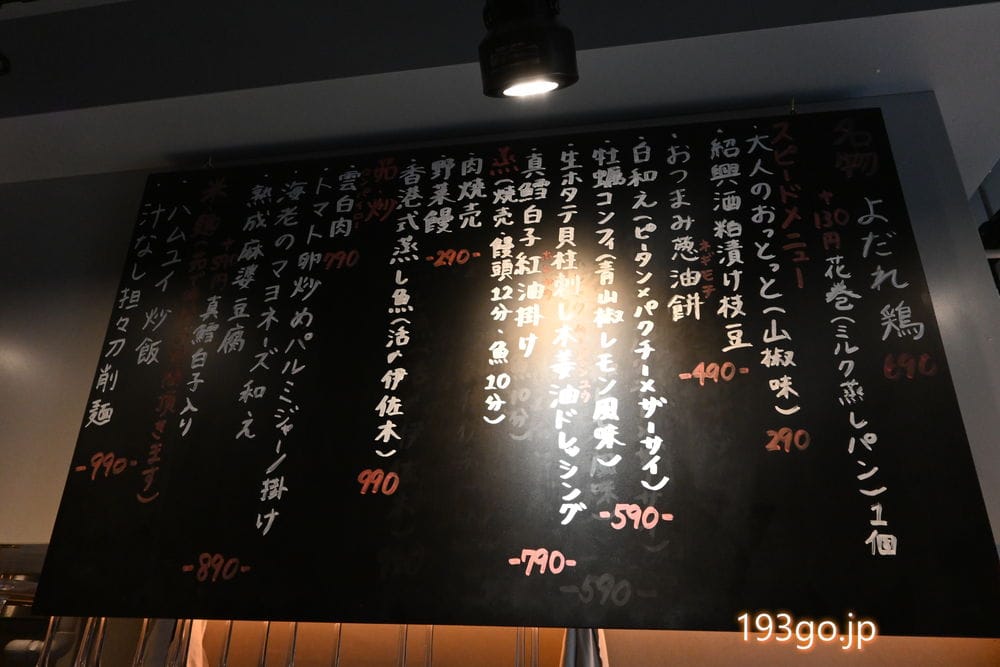 名物
よだれ鶏 690
+130円 花巻(ミルク蒸しパン)1個
スピードメニュー
大人のおっとっと(山椒味) 290
紹興酒粕漬け枝豆 -490-
おつまみ葱油餅
ネギモチ
白和え(ピータン×パクチー×ザーサイ) -590-
牡蠣コンフィ(青山椒レモン風味)
生ホタテ貝柱刺し木姜油ドレッシング
真鱈白子紅油掛け -790-
蒸(焼売・饅頭12分・魚10分)
肉焼売
野菜饅 -290-
香港式蒸し魚(活〆伊佐木) 990
菜・炒
雲白肉 790
トマト卵炒めパルミジャーノ掛け
海老のマヨネーズ和え
熟成麻婆豆腐 -890-
真鱈白子入り
米・麺
頂きます)
ハムユイ炒飯
汁なし担々刀削麺 -990-
-590-
193go.jp